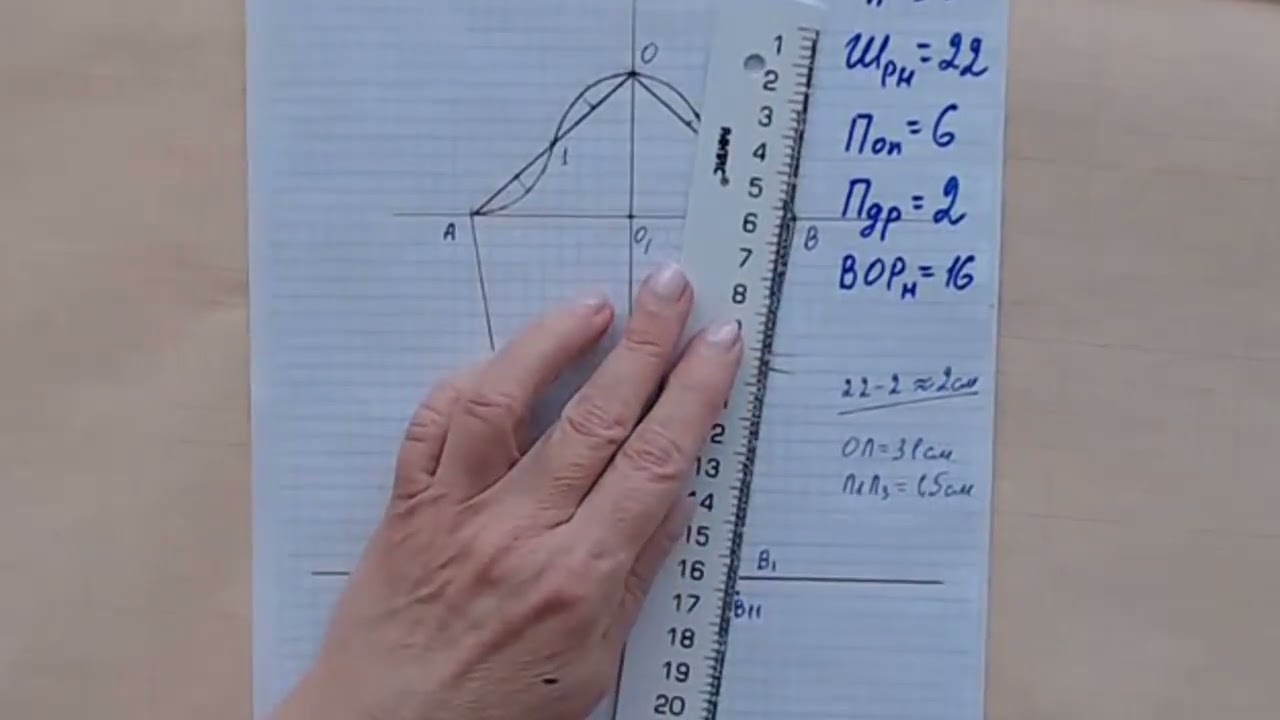 Шрн=22
Поп=6
Пдр=2
ВОРн=16
22-2≈2см
ОЛ=31см
1,5см
О
1
А
О1
В
В1
В11
1
2
3
4
5
6
7
8
12
13
14
15
16
17
18
19
20